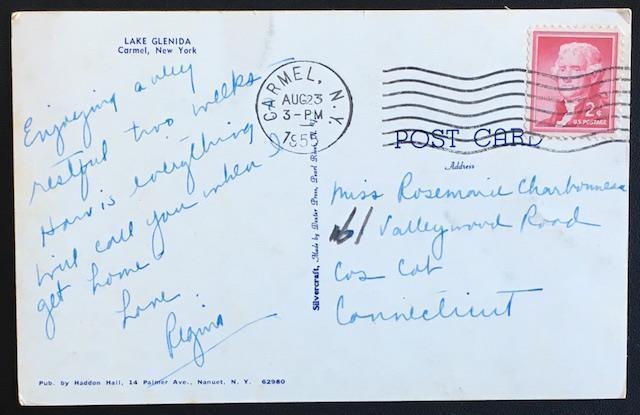 LAKE GLENIDA
Carmel, New York
Enjoying a very
restful two weeks —
How is everything
Will call you when I
get home.
Love.
Regina
Pub. by Haddon Hall, 14 Palmer Ave., Nanuet, N. Y. 62980
Silvercraft, Made by Dexter Press, Pearl River, N. Y.
CARMEL, N.Y.
AUG 23
3-PM
1955
2¢
U.S. POSTAGE
POST CARD
Address
Miss Rosemarie Charbonneau
161 Valleywood Road
Cos Cob
Connecticut